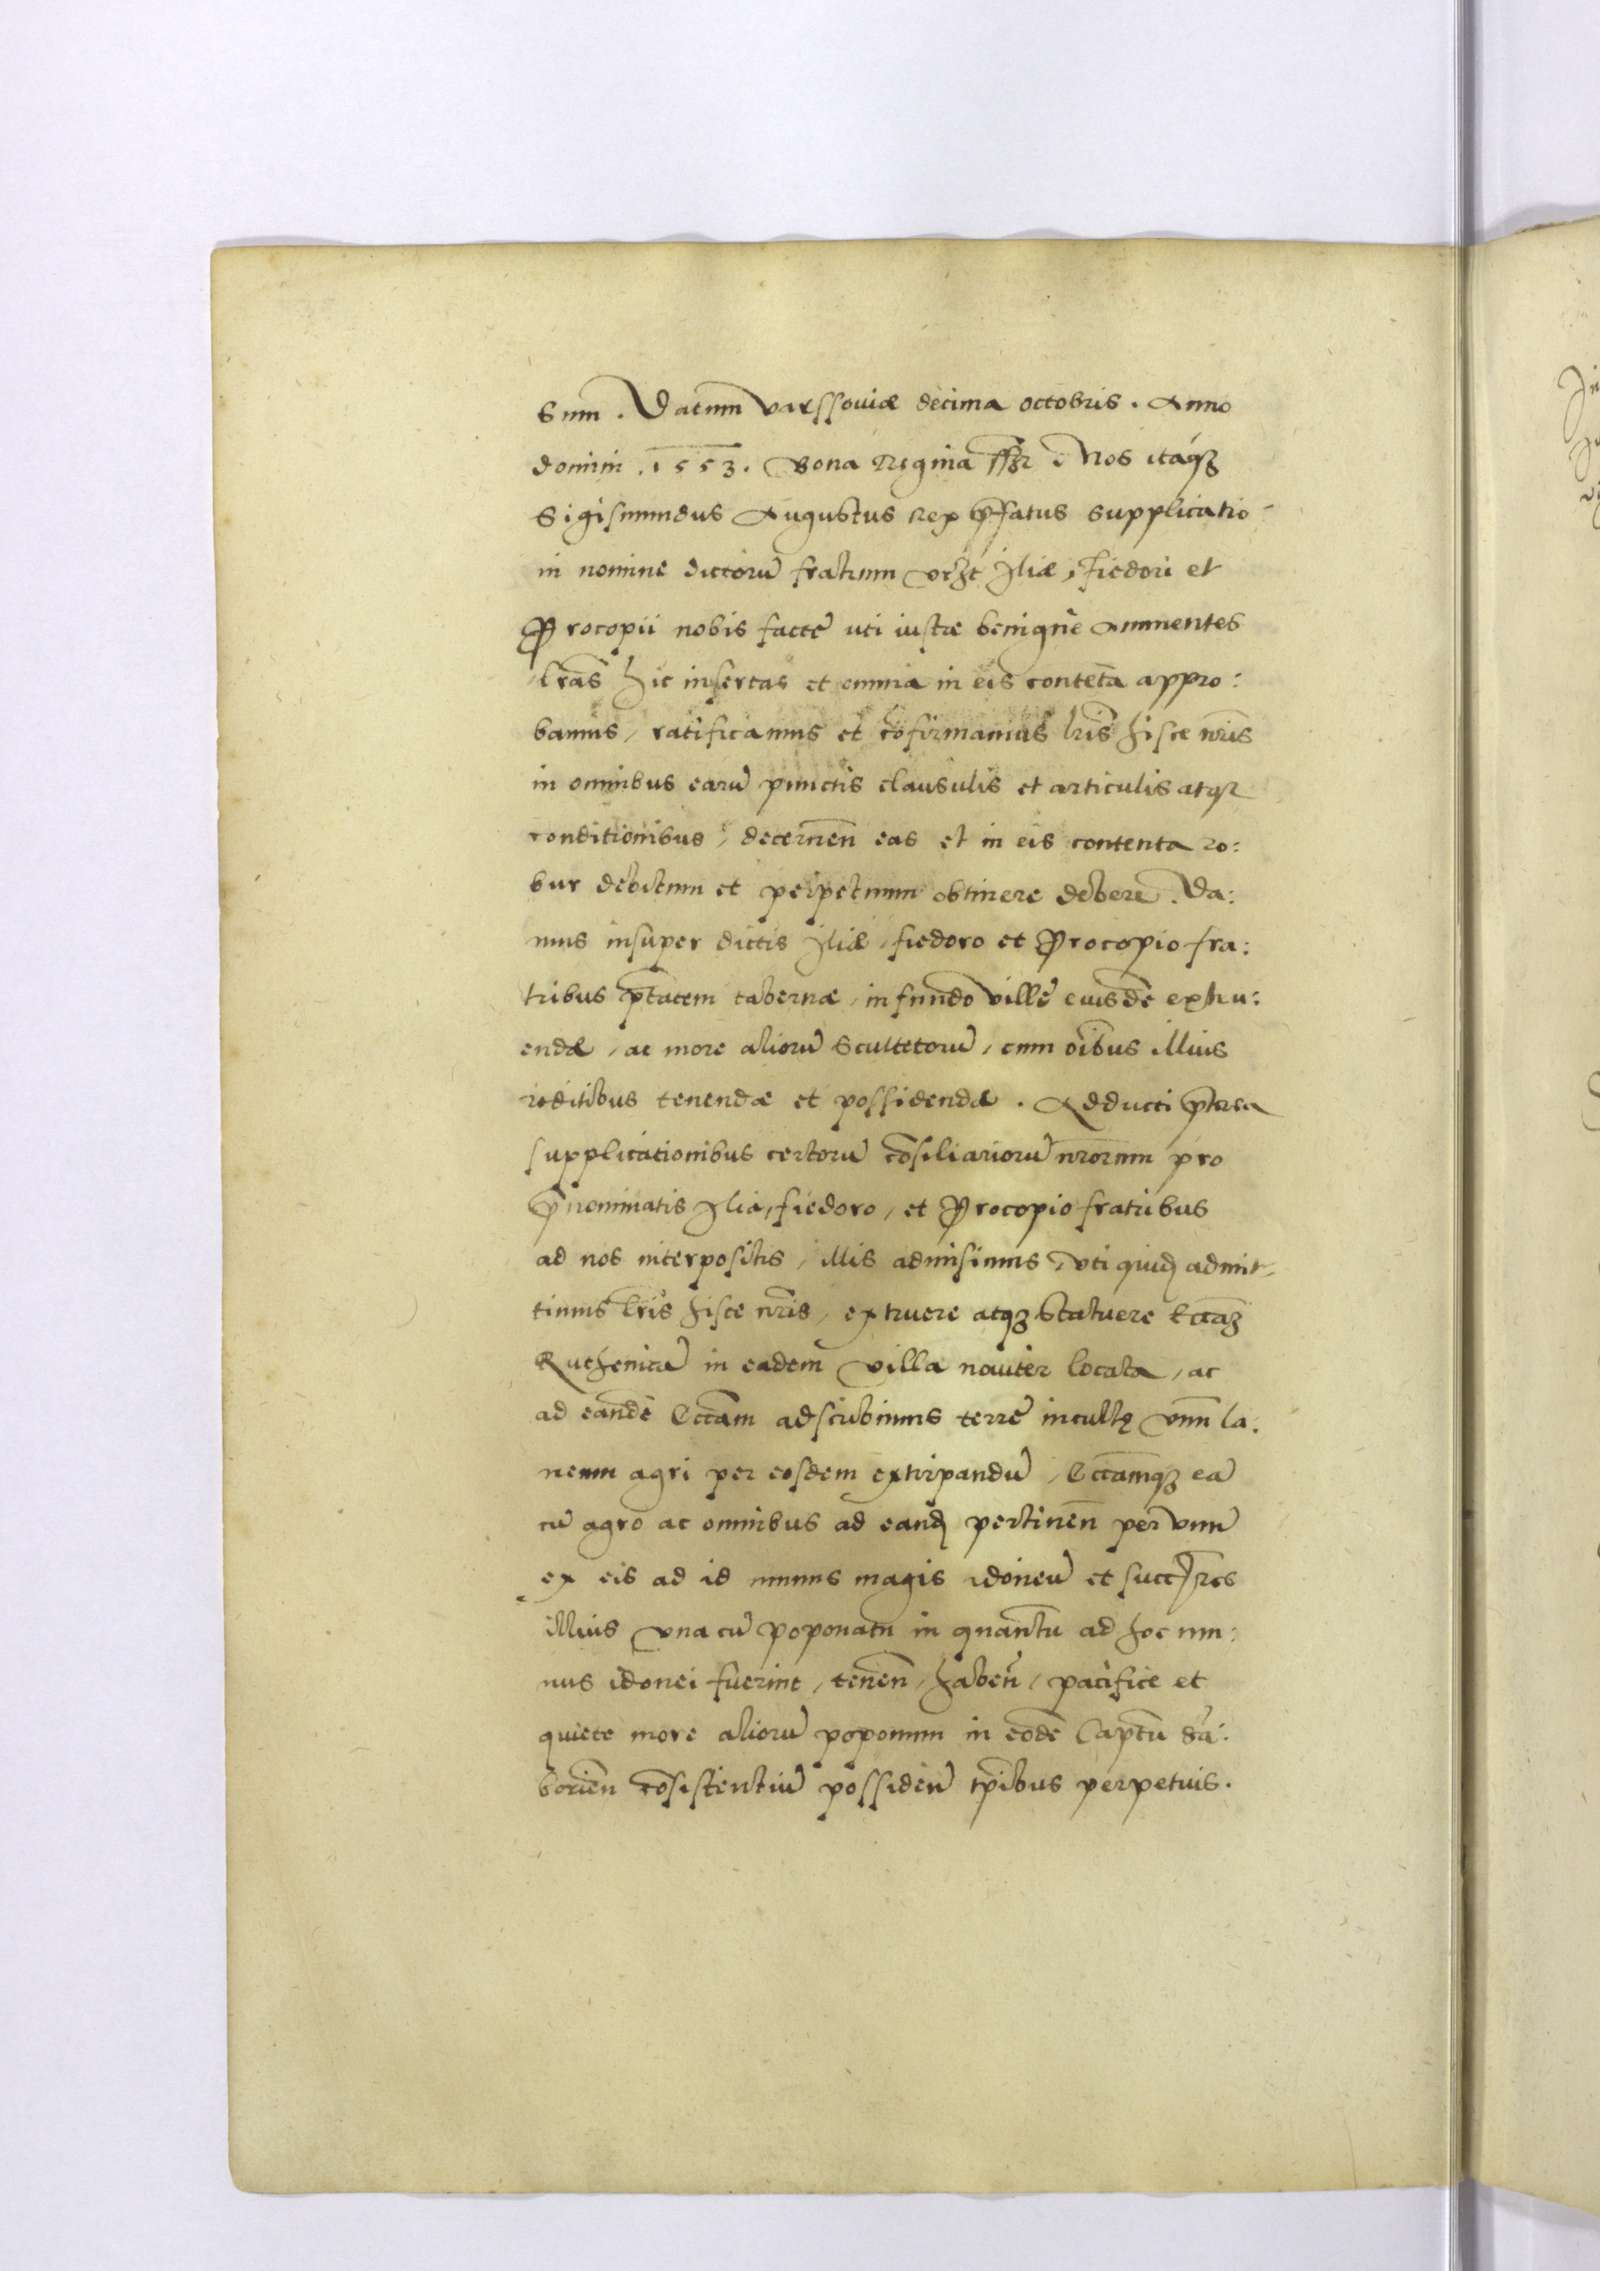 sum. Datum Varssouiæ decima octobris. Anno
domini .1553. Bona Regina ssz Nos itáqȝ
Sigismundus Augustus Rex p̄fatus supplicatio-
ni nomine dictorũ fratrum vcȝt Iliæ, Fiedori et
Procopii nobis factę uti iustæ benignè Annuentes
l̃ras hic insertas et omnia in eis contẽta appro:
bamus, ratificamus et cõfirmamus l̃ris hisce nr̃is
in omnibus earũ punctis clausulis et articulis atqȝ
conditionibus, decerneñ eas et in eis contenta ro:
bur debitum et perpetuum obtinere debere. Da:
mus insuper dictis Iliæ, fiedoro et Procopio fra:
tribus p̃tatem tabernæ, in fundo villę eiusdẽ extru:
endæ, ac more aliorũ Scultetorũ, cum oĩbus illius
reditibus tenendæ et possidendæ. Adducti p̃terea
supplicationibus certorũ cõsiliariorũ nr̃orum pro
p̃nominatis Ilia, fiedoro, et Procopio fratribus
ad nos interpositis, illis admisimus, vti quidę admit-
timus l̃ris hisce nr̃is, extruere atqȝ statuere Ecc̃aȝ
Ruthenicã in eadem villa nouiter locata, ac
ad eandẽ Ecc̃am adscribimus terrę incultę vnũ la:
neum agri per eosdem extirpandũ, Ecc̃amqȝ eã
cũ agro ac omnibus ad eandę pertineñ per vnũ
ex eis ad id munus magis idoneũ et succ̃res
illius vna cũ poponatu in quantũ ad hoc mu:
nus idonei fuerint, teneñ, habeñ, pacifice et
quiete more aliorũ poponum in eodẽ Cap̃tu Sã:
borieñ cõsistentiũ possideñ tp̃ibus perpetuis.